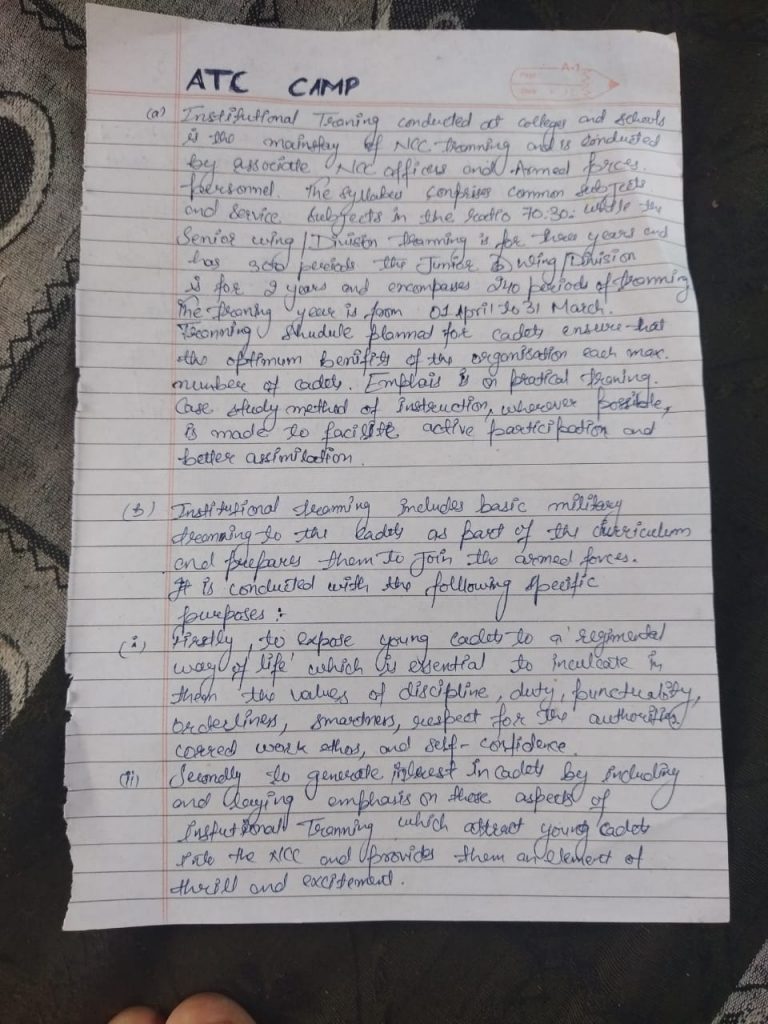 ATC CAMP
A-1
(a) Institutional Traning conducted at colleges and schools
is the mainstay of NCC tranning and is conducted
by associate NCC officers and Armed forces.
personnel. The syllabus comprises common subjects
and service subjects in the ratio 70:30: while the
Senior wing / Division tranning is for three years and
has 300 periods the Junior wing / Division
is for 2 years and encompases 240 periods of tranning
The traning year is from 01 April to 31 March.
Tranning shudule planned for cadets ensure that
the optimum benifits of the organisation each max.
number of cadets. Emplais is on pratical traning.
Case study method of instruction, wherever possible,
is made to facilite active participation and
better assimilation.
(b) Institutional tranning includes basic military
tranning to the cadets as part of the curriculum
and prepares them to Join the armed forces.
It is conducted with the following specific
purposes :-
(i) Firstly, to expose young cadets to a 'regimental
way of life' which is essential to inculcate in
them the values of discipline, duty, punctuality,
orderliness, smartness, respect for the authorities,
corred work ethos, and self-confidence.
(ii) Secondly to generate interest in cadets by including
and laying emphasis on those aspects of
Institutional Tranning which attract young cadets
into the NCC and provides them an element of
thrill and excitement.